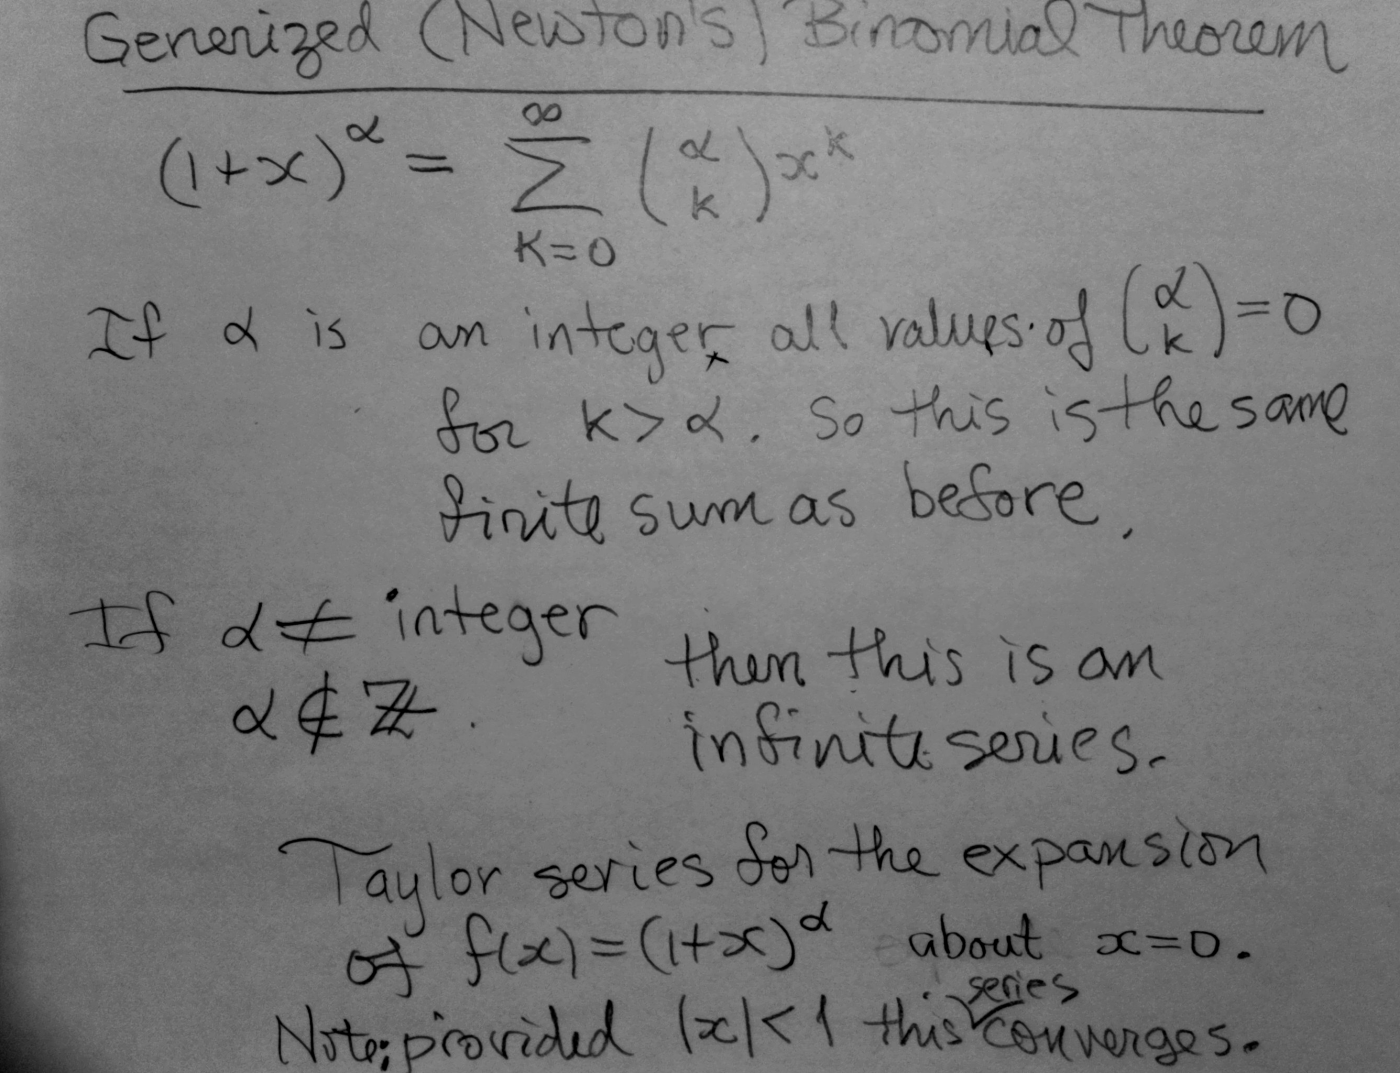 Generized (Newton's) Binomial Theorem
(1+x)^α = ∑_{k=0}^{∞} (α k) x^k
If α is an integer, all values of (α k) = 0
for k > α. So this is the same
finite sum as before.
If α ≠ integer
α ∉ ℤ.
then this is an
infinite series.
Taylor series for the expansion
of f(x) = (1+x)^α about x=0.
Note: provided |x| < 1 this series converges.